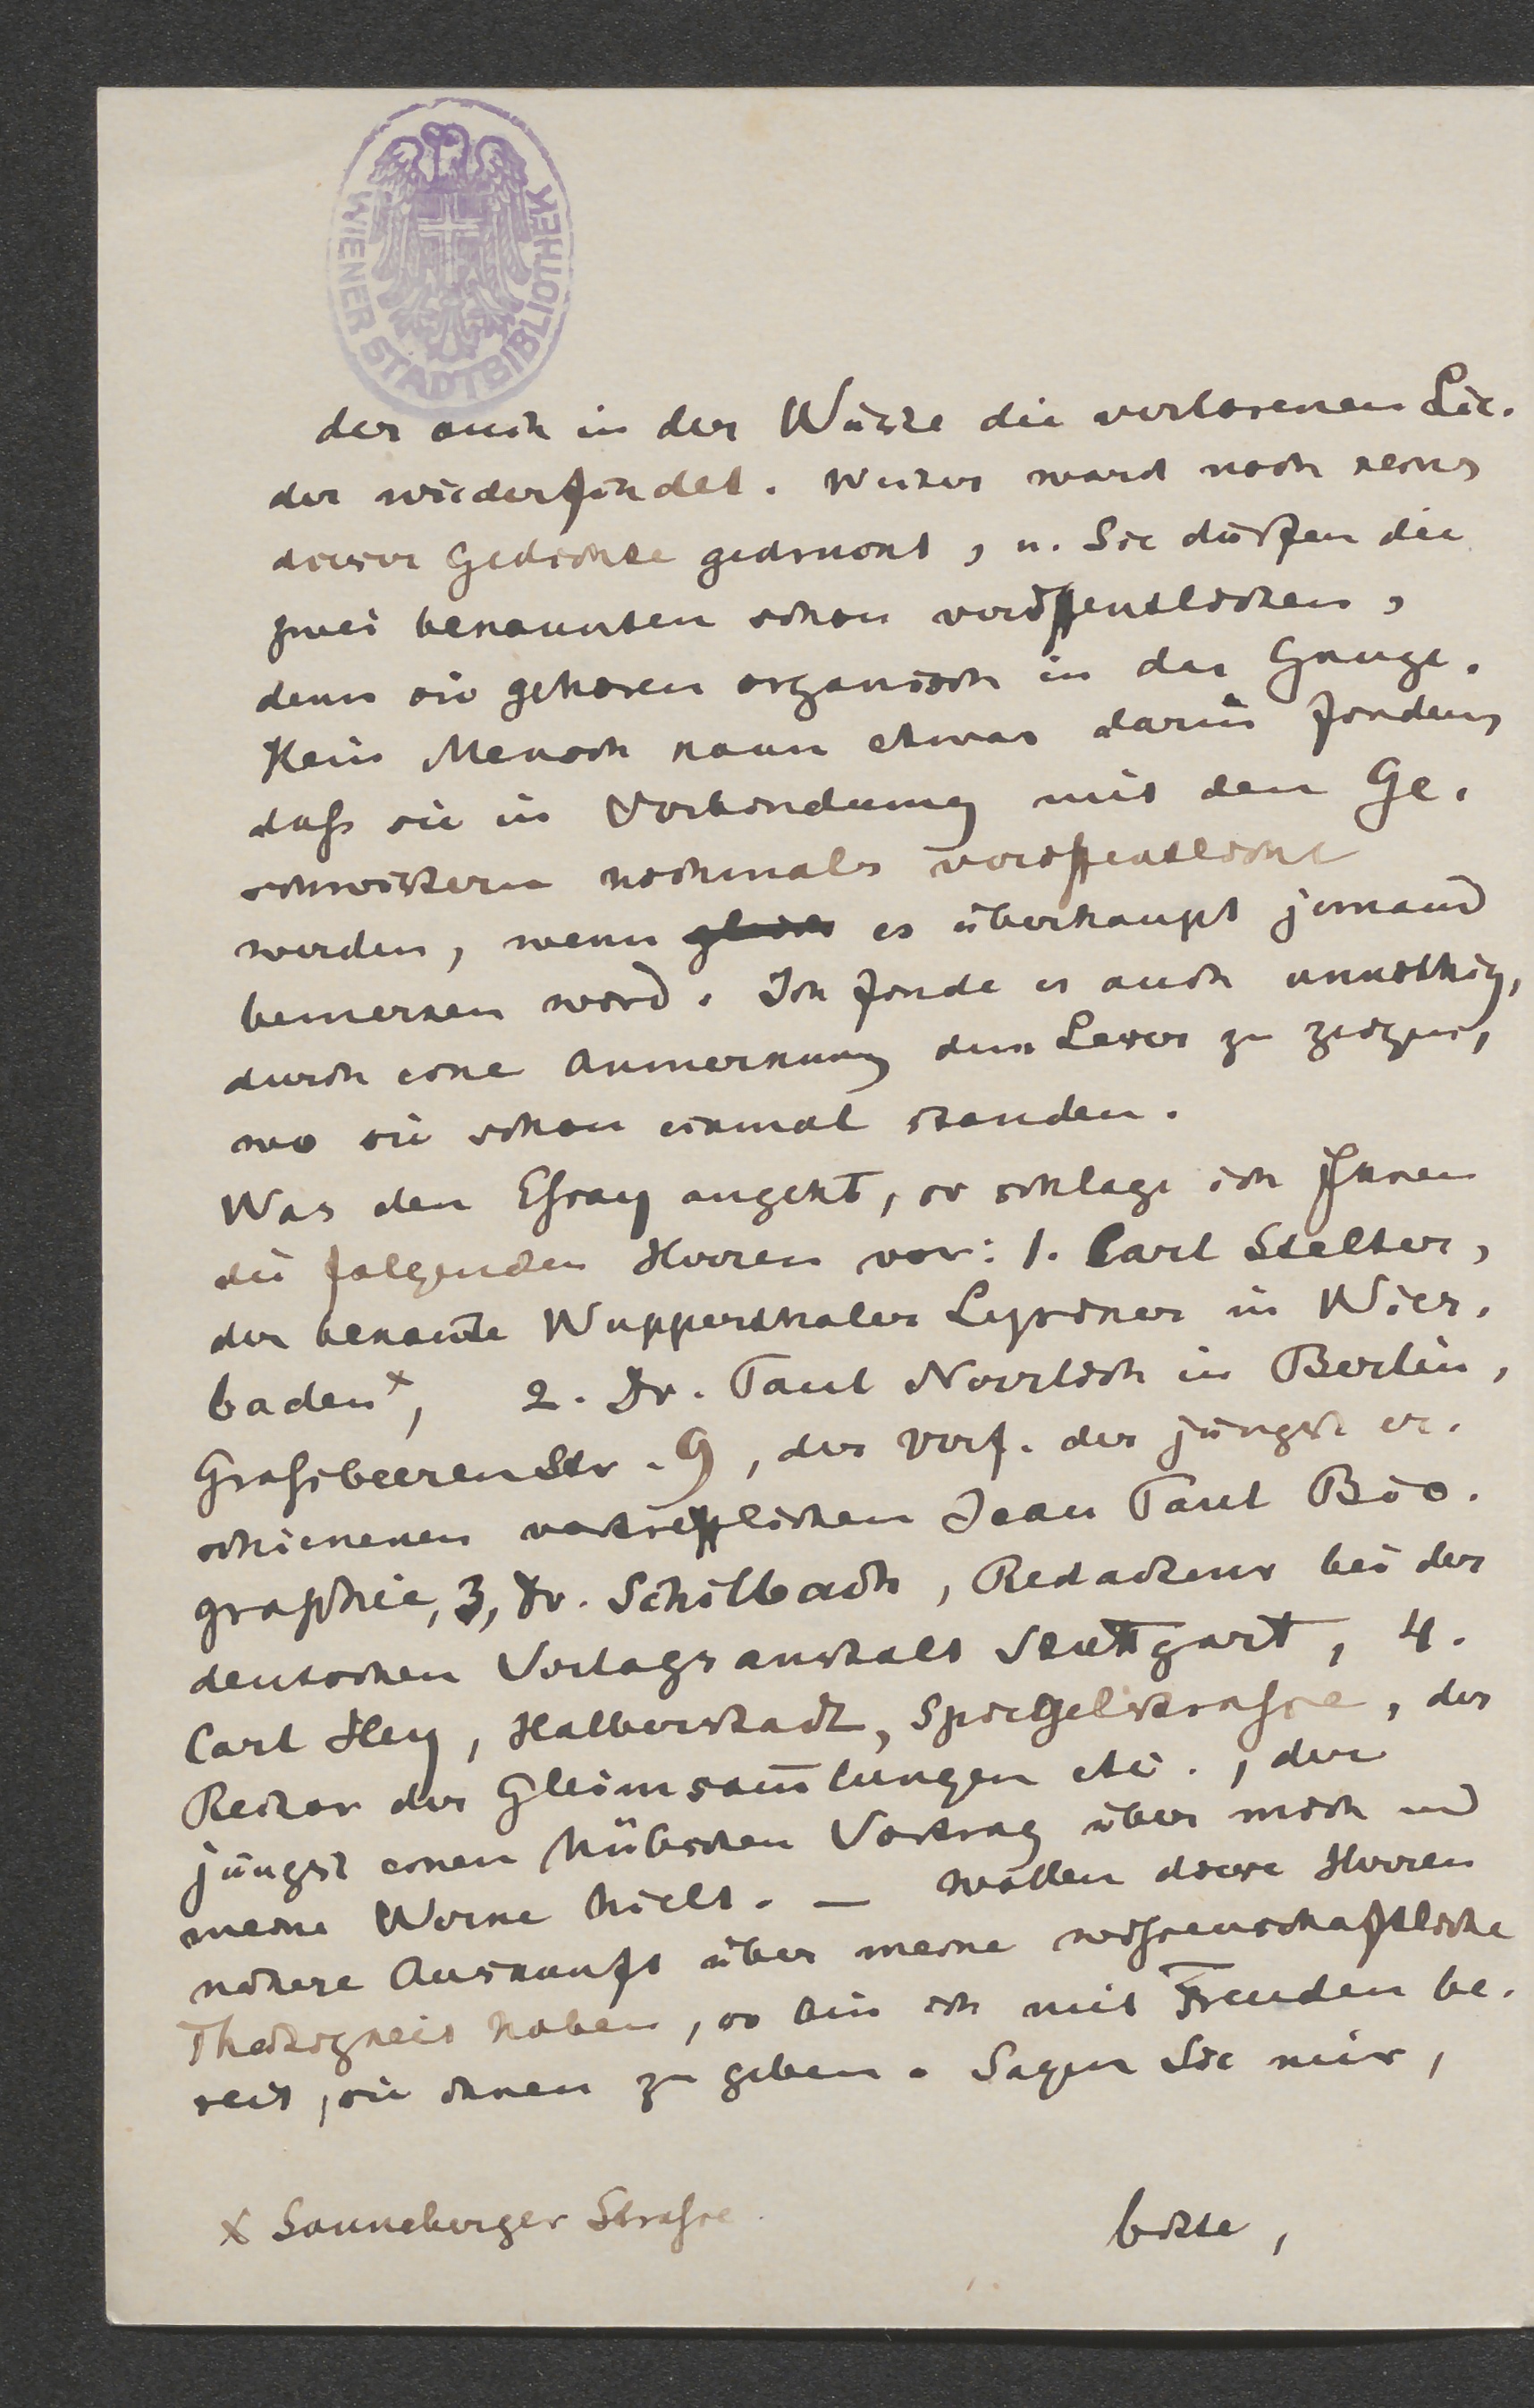 WIENER STADTBIBLIOTHEK
der auch in der Wüste die verlorenen Lie-
der wiederfindet. Weiter ward noch keins
dieser Gedichte gedruckt, u. Sie dürfen die
zwei bekannten schon veröffentlichen,
denn sie gehören organisch in das Ganze.
Kein Mensch kann etwas darin finden,
daß sie in Verbindung mit den Ge-
schwistern nochmals veröffentlicht
werden, wenn es überhaupt jemand
bemerken wird. Ich finde es auch unnöthig,
durch eine Anmerkung dem Leser zu zeigen,
wo sie schon einmal standen.
Was den Eßay angeht, so schlage ich Ihnen
die folgenden Herren vor: 1. Carl Stelter,
der bekannte Wupperthaler Lyriker in Wies-
baden x, 2. Dr. Paul Nerrlich in Berlin,
Großbeerenstr. 9, der Verf. der jüngst er-
schienenen vortrefflichen Jean Paul Bio-
graphie, 3, Dr. Schilbach, Redacteur bei der
deutschen Verlagsanstalt Stuttgart, 4.
Carl Hey, Halberstadt, Spiegelstraße, der
Rector der Gleimsam̄lungen etc., der
jüngst einen hübschen Vortrag über mich und
meine Werke hielt. — Wollen diese Herren
nähere Auskunft über meine wißenschaftliche
Thätigkeit haben, so bin ich mit Freuden be-
reit, sie ihnen zu geben. Sagen Sie mir,
x Sonneberger Straße.
bitte,